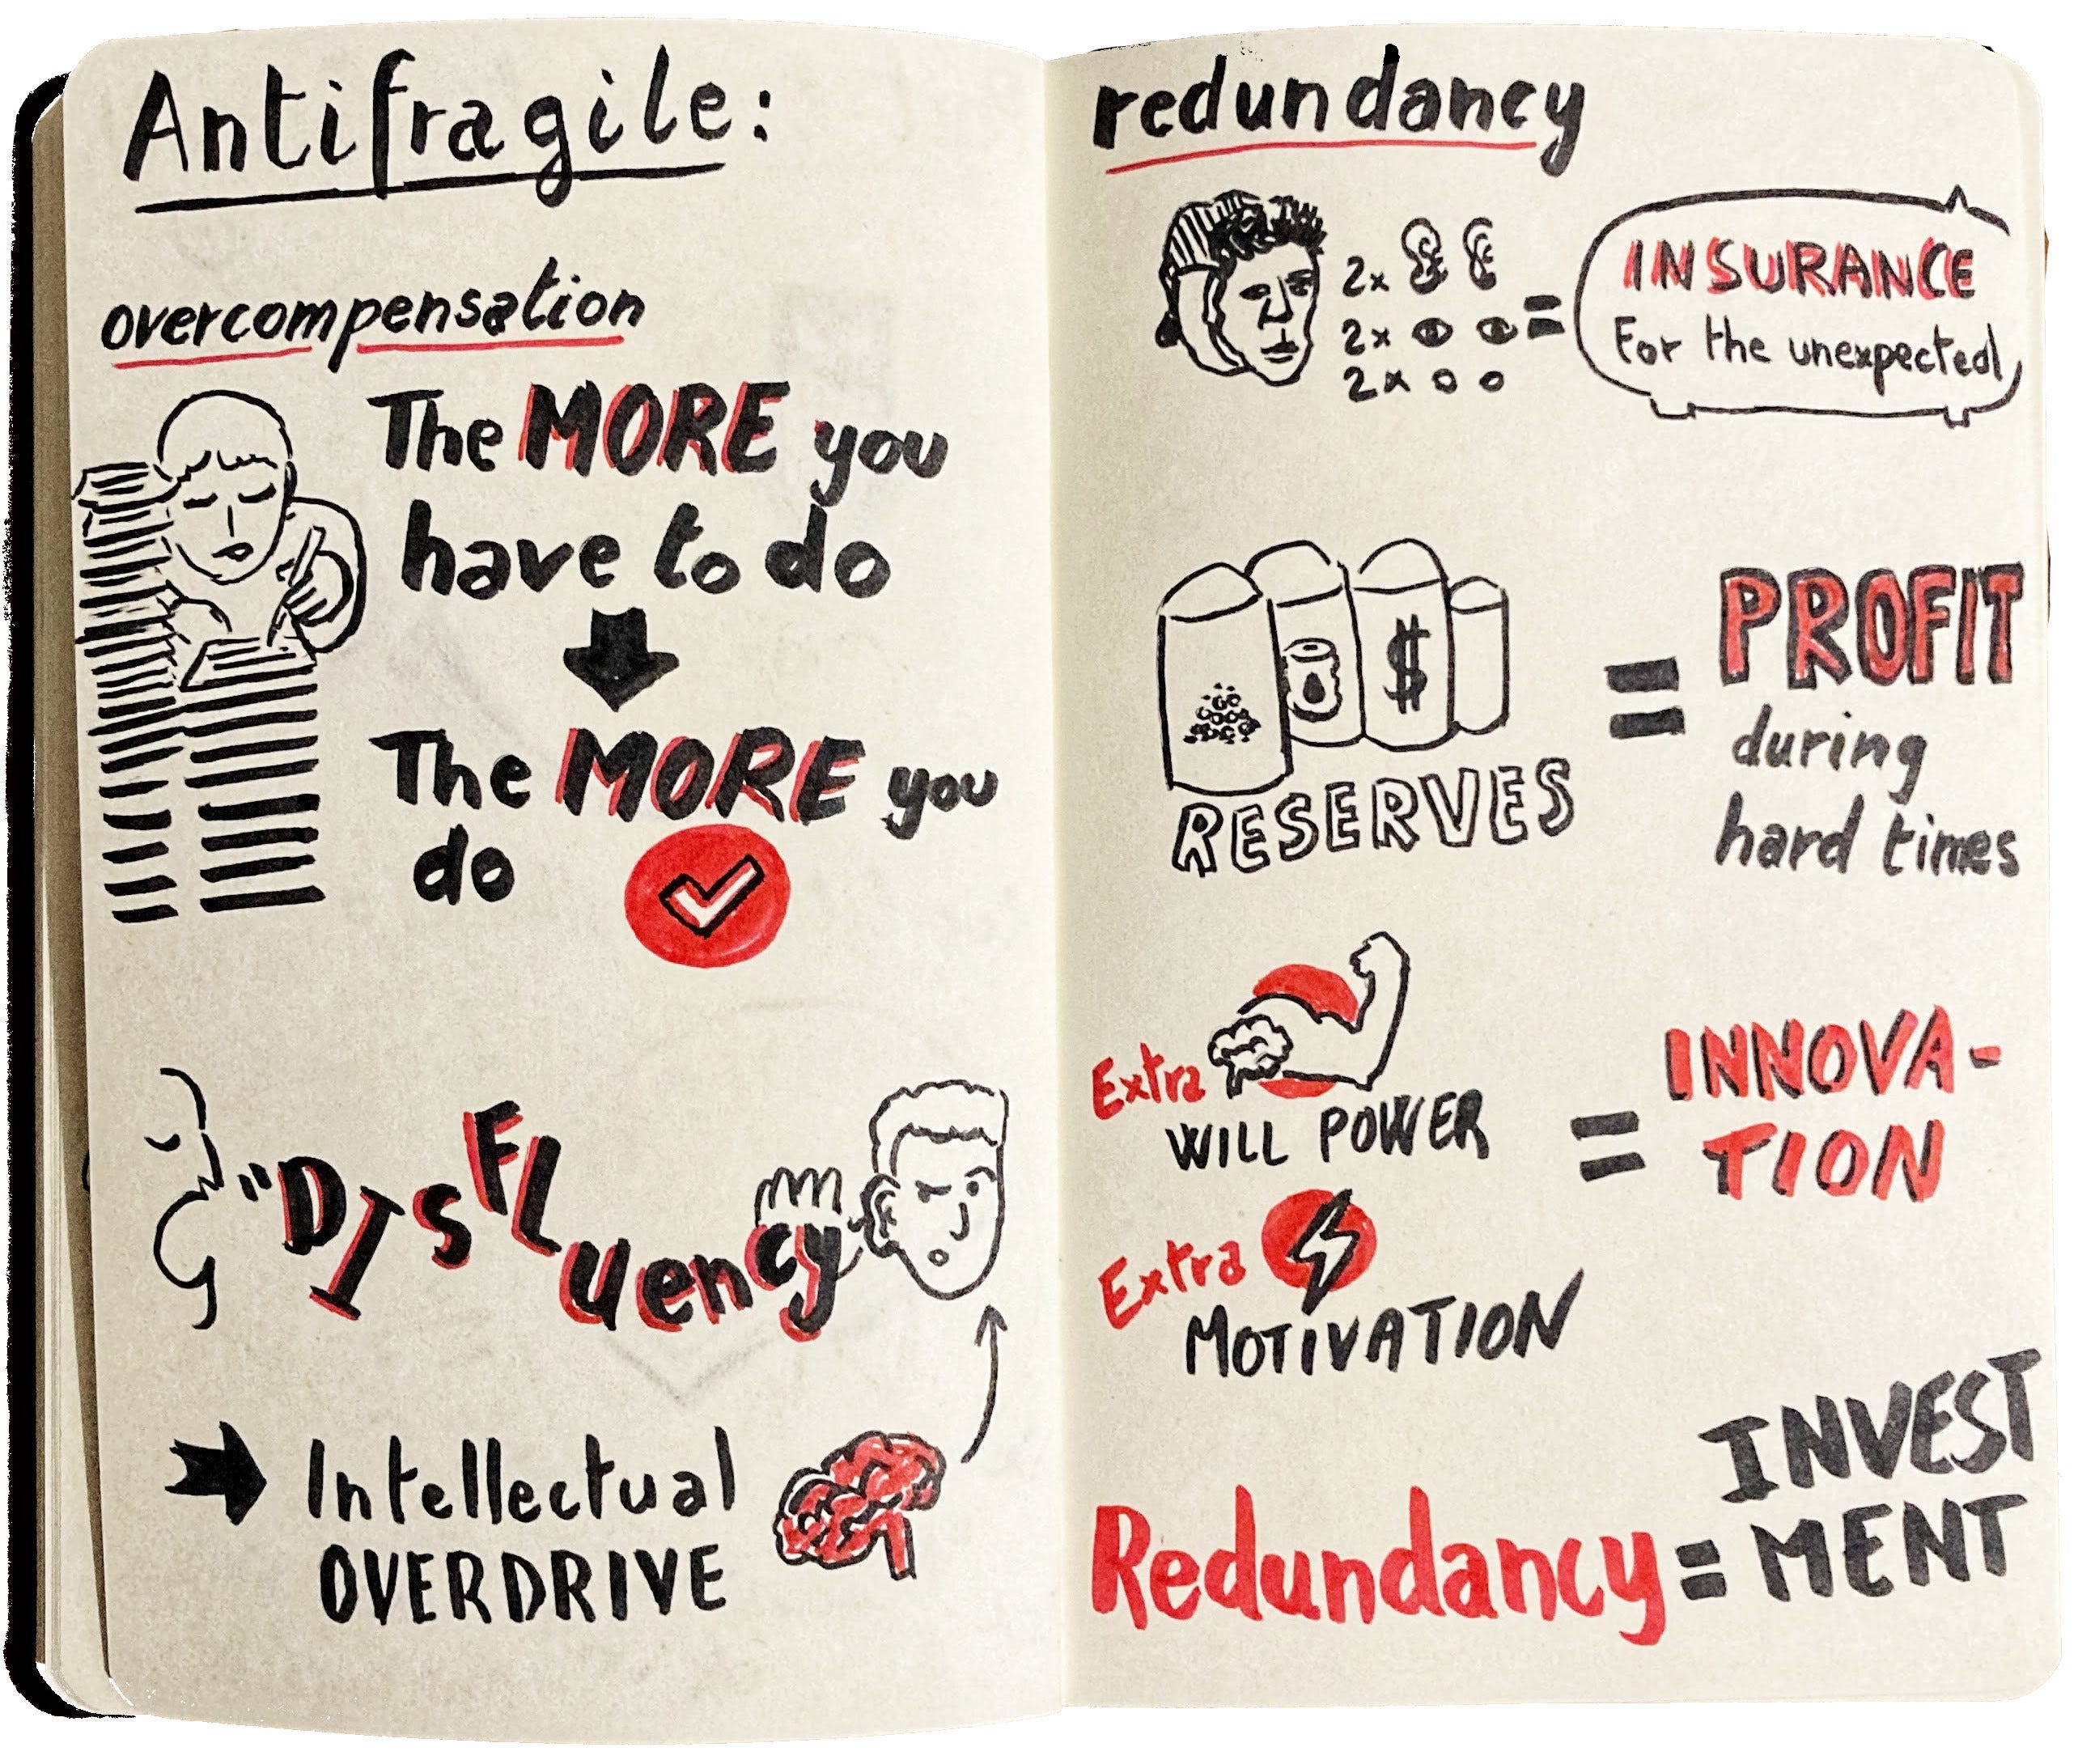 Antifragile:
overcompensation
The MORE you
have to do
The MORE you
do
"DISFLuency
Intellectual
OVERDRIVE
redundancy
2x
2x
2x
=
INSURANCE
For the unexpected
$
RESERVES
=
PROFIT
during
hard times
Extra
WILL POWER
Extra
MOTIVATION
=
INNOVA-
TION
Redundancy =
INVEST
MENT